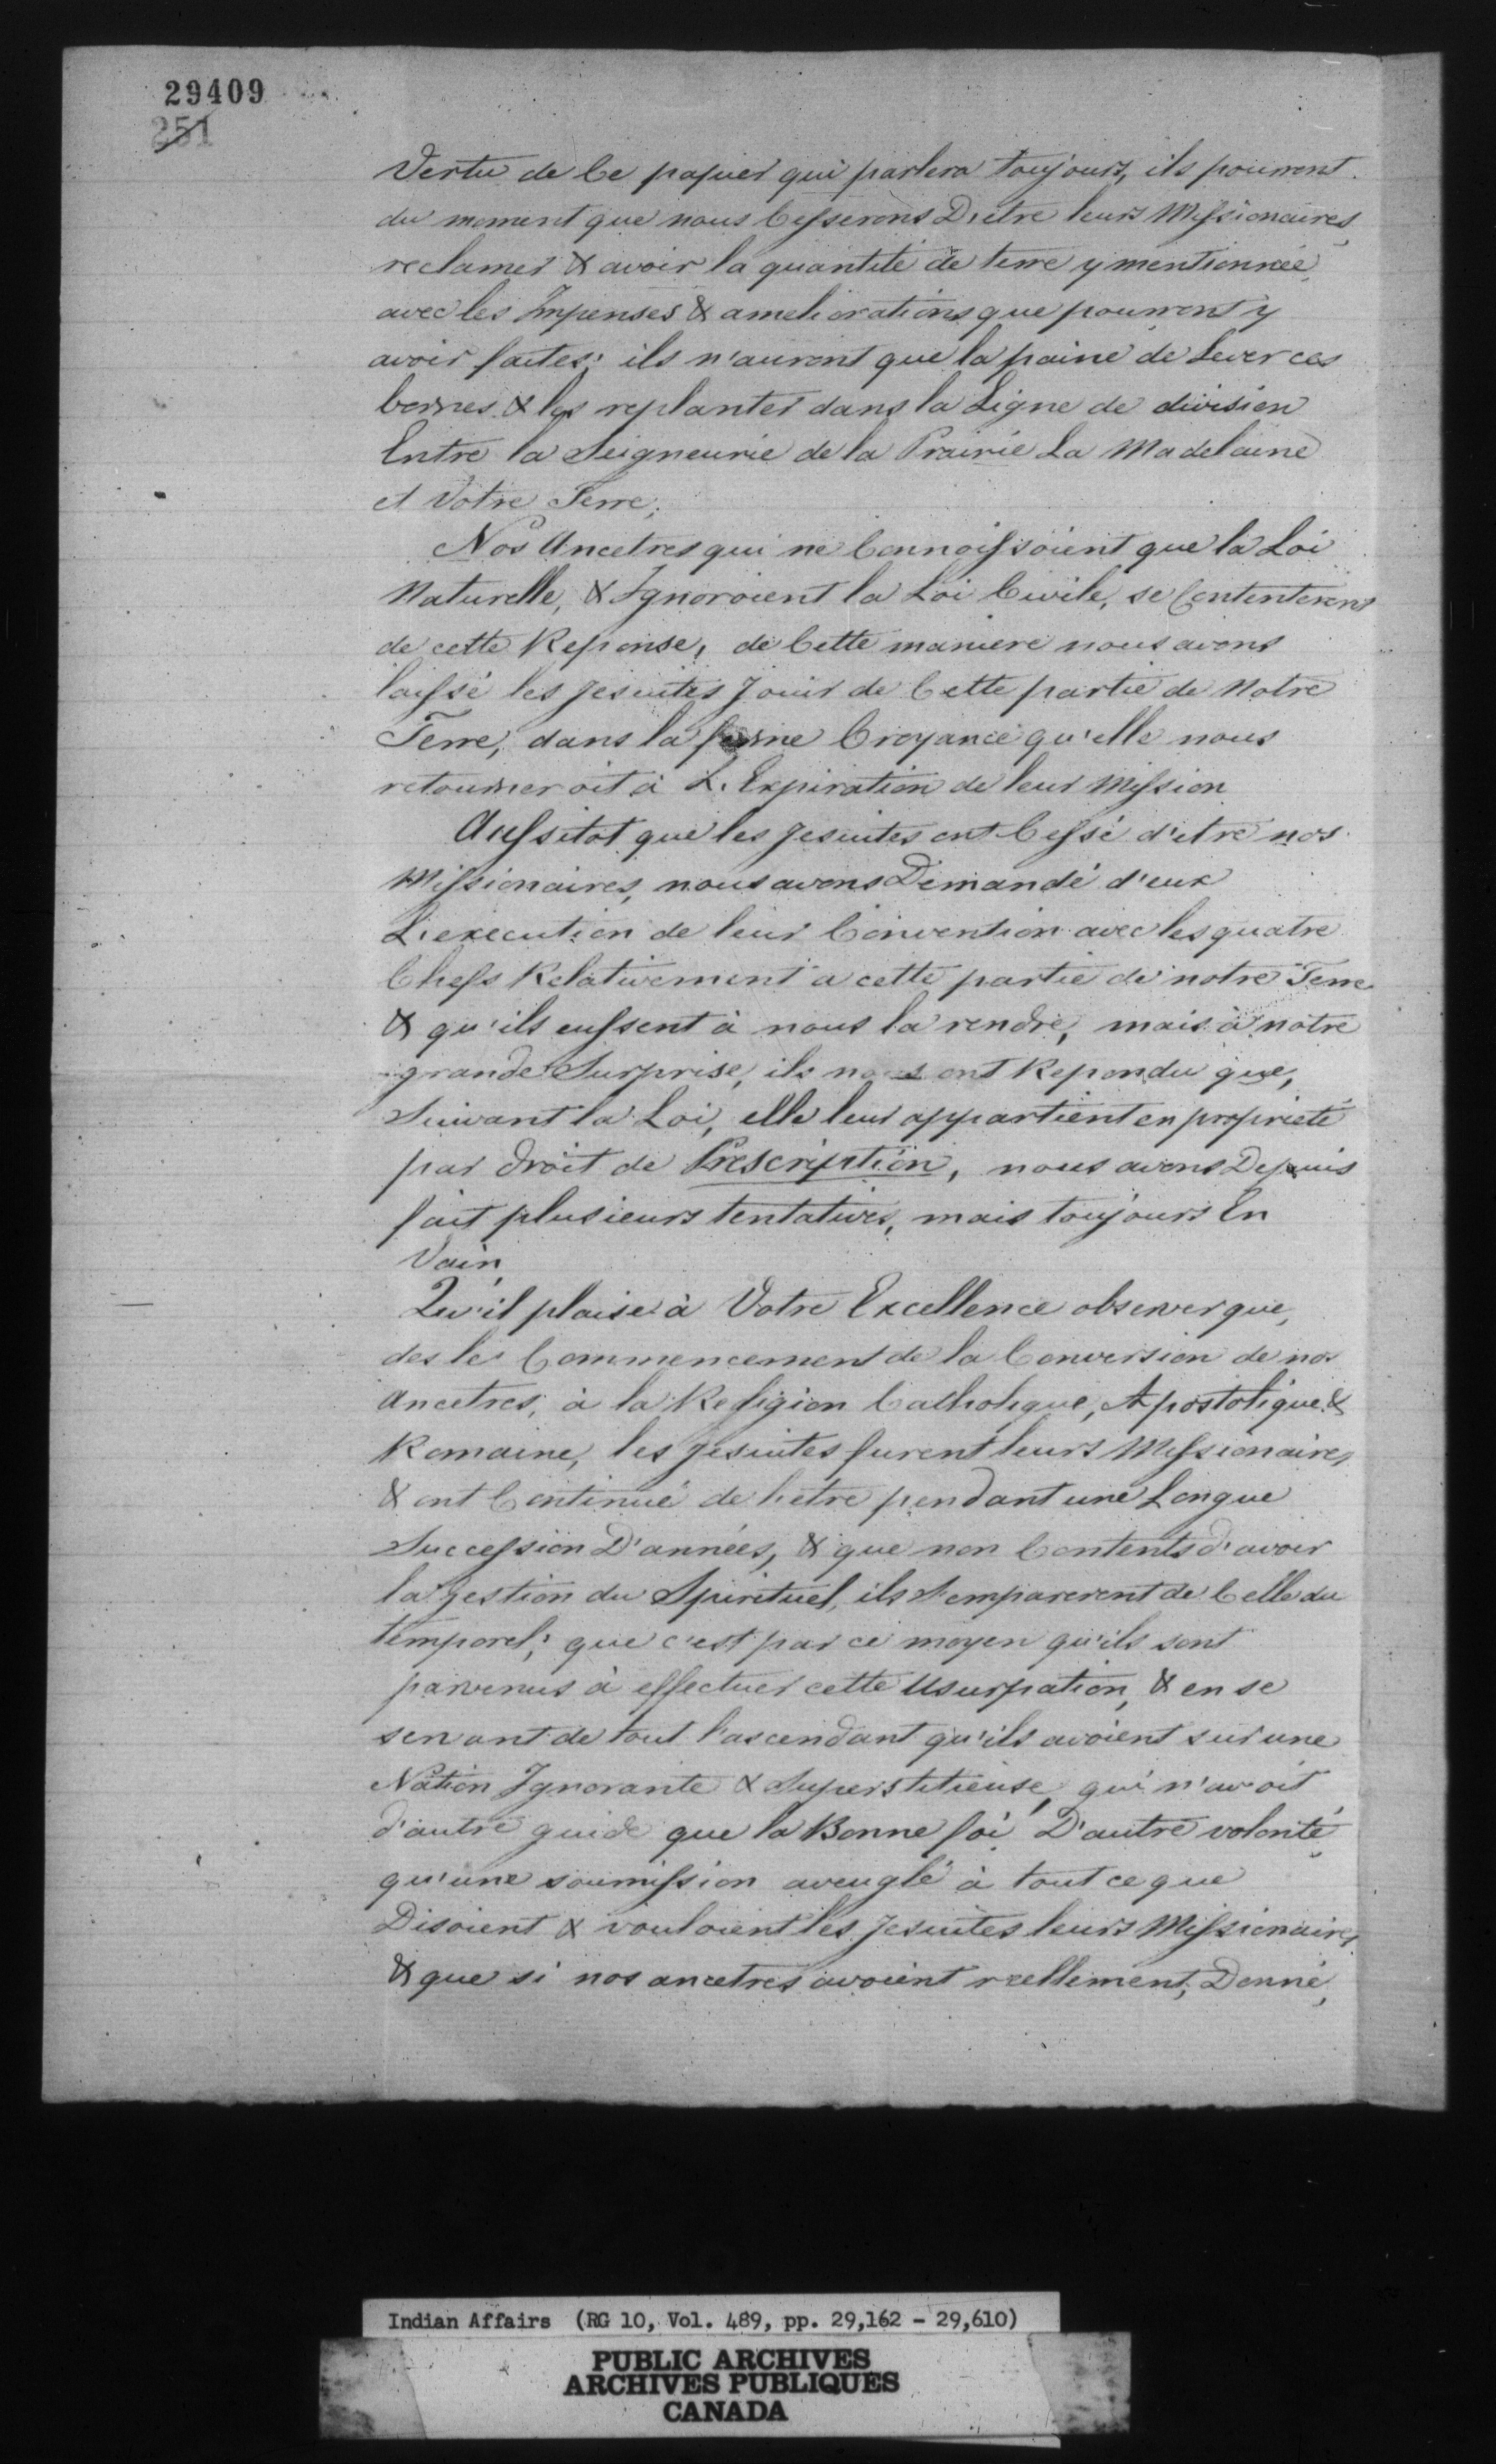 29409
251
Vertu de Ce papier qui parlera toujours, ils pourront
du moment que nous Cesserons D'etre leurs Missionaires,
reclamer & avoir la quantité de terre y mentionnée
avec les Impenses & ameliorations que pourront y
avoir faites; ils n'auront que la paine de Lever ces
bornes & les replanter dans la Ligne de division
Entre la Seigneurie de la Prairie La Madelaine
et Votre Terre;
Nos Ancetres qui ne Connoissoient que la Loi
Naturelle, & Ignoroient la Loi Civile, se Contenterent
de cette Reponse, de Cette maniere nous avons
laissé les Jesuites Jouir de Cette partie de Notre
Terre, dans la ferme Croyance qu'elle nous
retourneroit à L'Expiration de leur Mission
Aussitot que les Jesuites ont Cessé d'etre nos
Missionaires, nous avons Demandé d'eux
L'execution de leur Convention avec les quatre
Chefs Relativement a cette partie de notre Terre
& qu'ils eussent à nous la rendre, mais à notre
grande Surprise, ils nous ont Repondu que,
Suivant la Loi, elle leur appartient en propriété
par droit de Prescription, nous avons Depuis
fait plusieurs tentatives, mais toujours En
Vain
Qu'il plaise à Votre Excellence observer que,
des le Commencement de la Conversion de nos
Ancetres, à la Religion Catholique, Apostolique &
Romaine, les Jesuites furent leurs Missionaires,
& ont Continué de l'etre pendant une Longue
Succession D'années, & que non Contents d'avoir
la gestion du Spirituel, ils S'emparerent de Celle du
temporel; que c'est par ce moyen qu'ils sont
parvenus à effectuer cette Usurpation, & en se
servant de tout l'ascendant qu'ils avoient sur une
Nation Ignorante & Superstitieuse, qui n'avoit
d'autre guide que la Bonne foi D'autre volonté
qu'une soumission aveugle à tout ce que
Disoient & vouloient les Jesuites leurs Missionaires,
& que si nos ancetres avoient reellement, Donné,
Indian Affairs (RG 10, Vol. 489, pp. 29,162 - 29,610)
PUBLIC ARCHIVES
ARCHIVES PUBLIQUES
CANADA